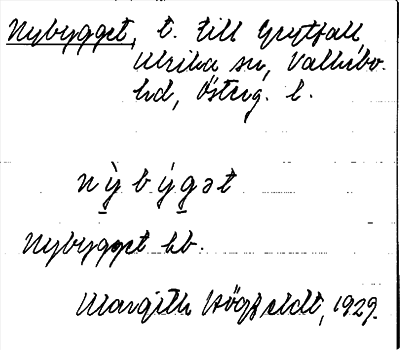 Nybygget, t. till Grytfall
Ulrika sn, Valkebo
hd, Österg. l.
nỳbýgət
Nybygget hb.
Margith Högfeldt, 1929.